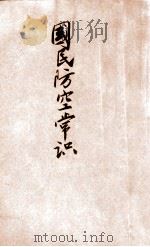 國民防空常识
mtoou.info